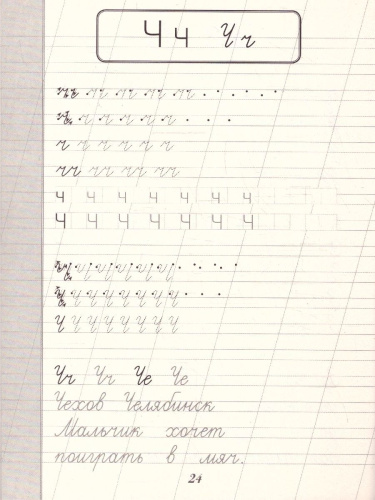 Ч ч Ч ч
ч ч ч ч ч
ч ч ч ч ч ч
ч ч ч ч ч ч
чч чч чч чч
Ч Ч Ч Ч Ч Ч Ч
Ч Ч Ч Ч Ч Ч Ч
Ч Ч Ч Ч Ч Ч Ч Ч
Ч Ч Ч Ч Ч Ч Ч Ч
Чч Чч Че Че
Чехов Челябинск
Мальчик хочет
поиграть в мяч.
24